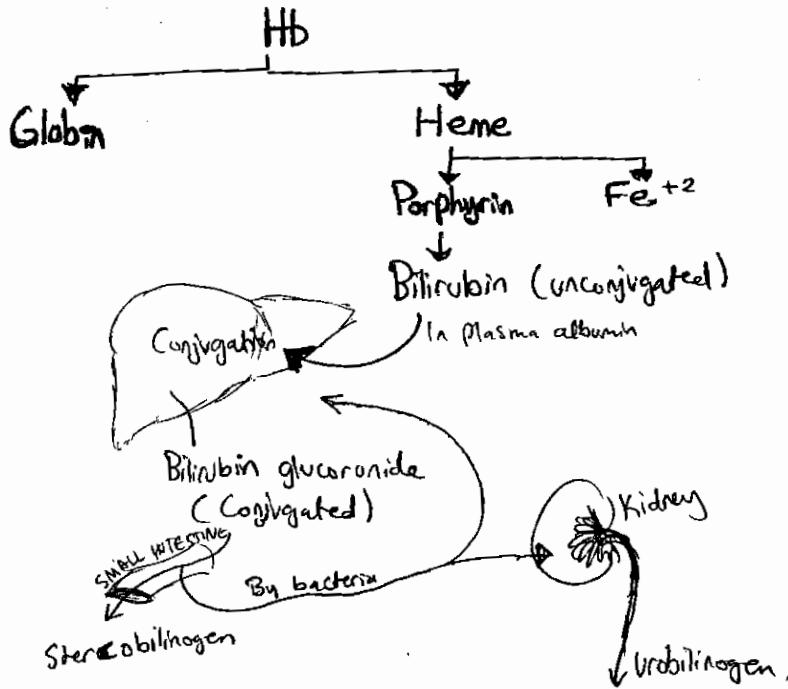 Hb
Globin
Heme
Porphyrin
Fe +2
Bilirubin (unconjugated)
In plasma albumin
Conjugation
Bilirubin glucoronide
(Conjugated)
SMALL INTESTINE
By bacteria
Kidney
Stercobilinogen
Urobilinogen.